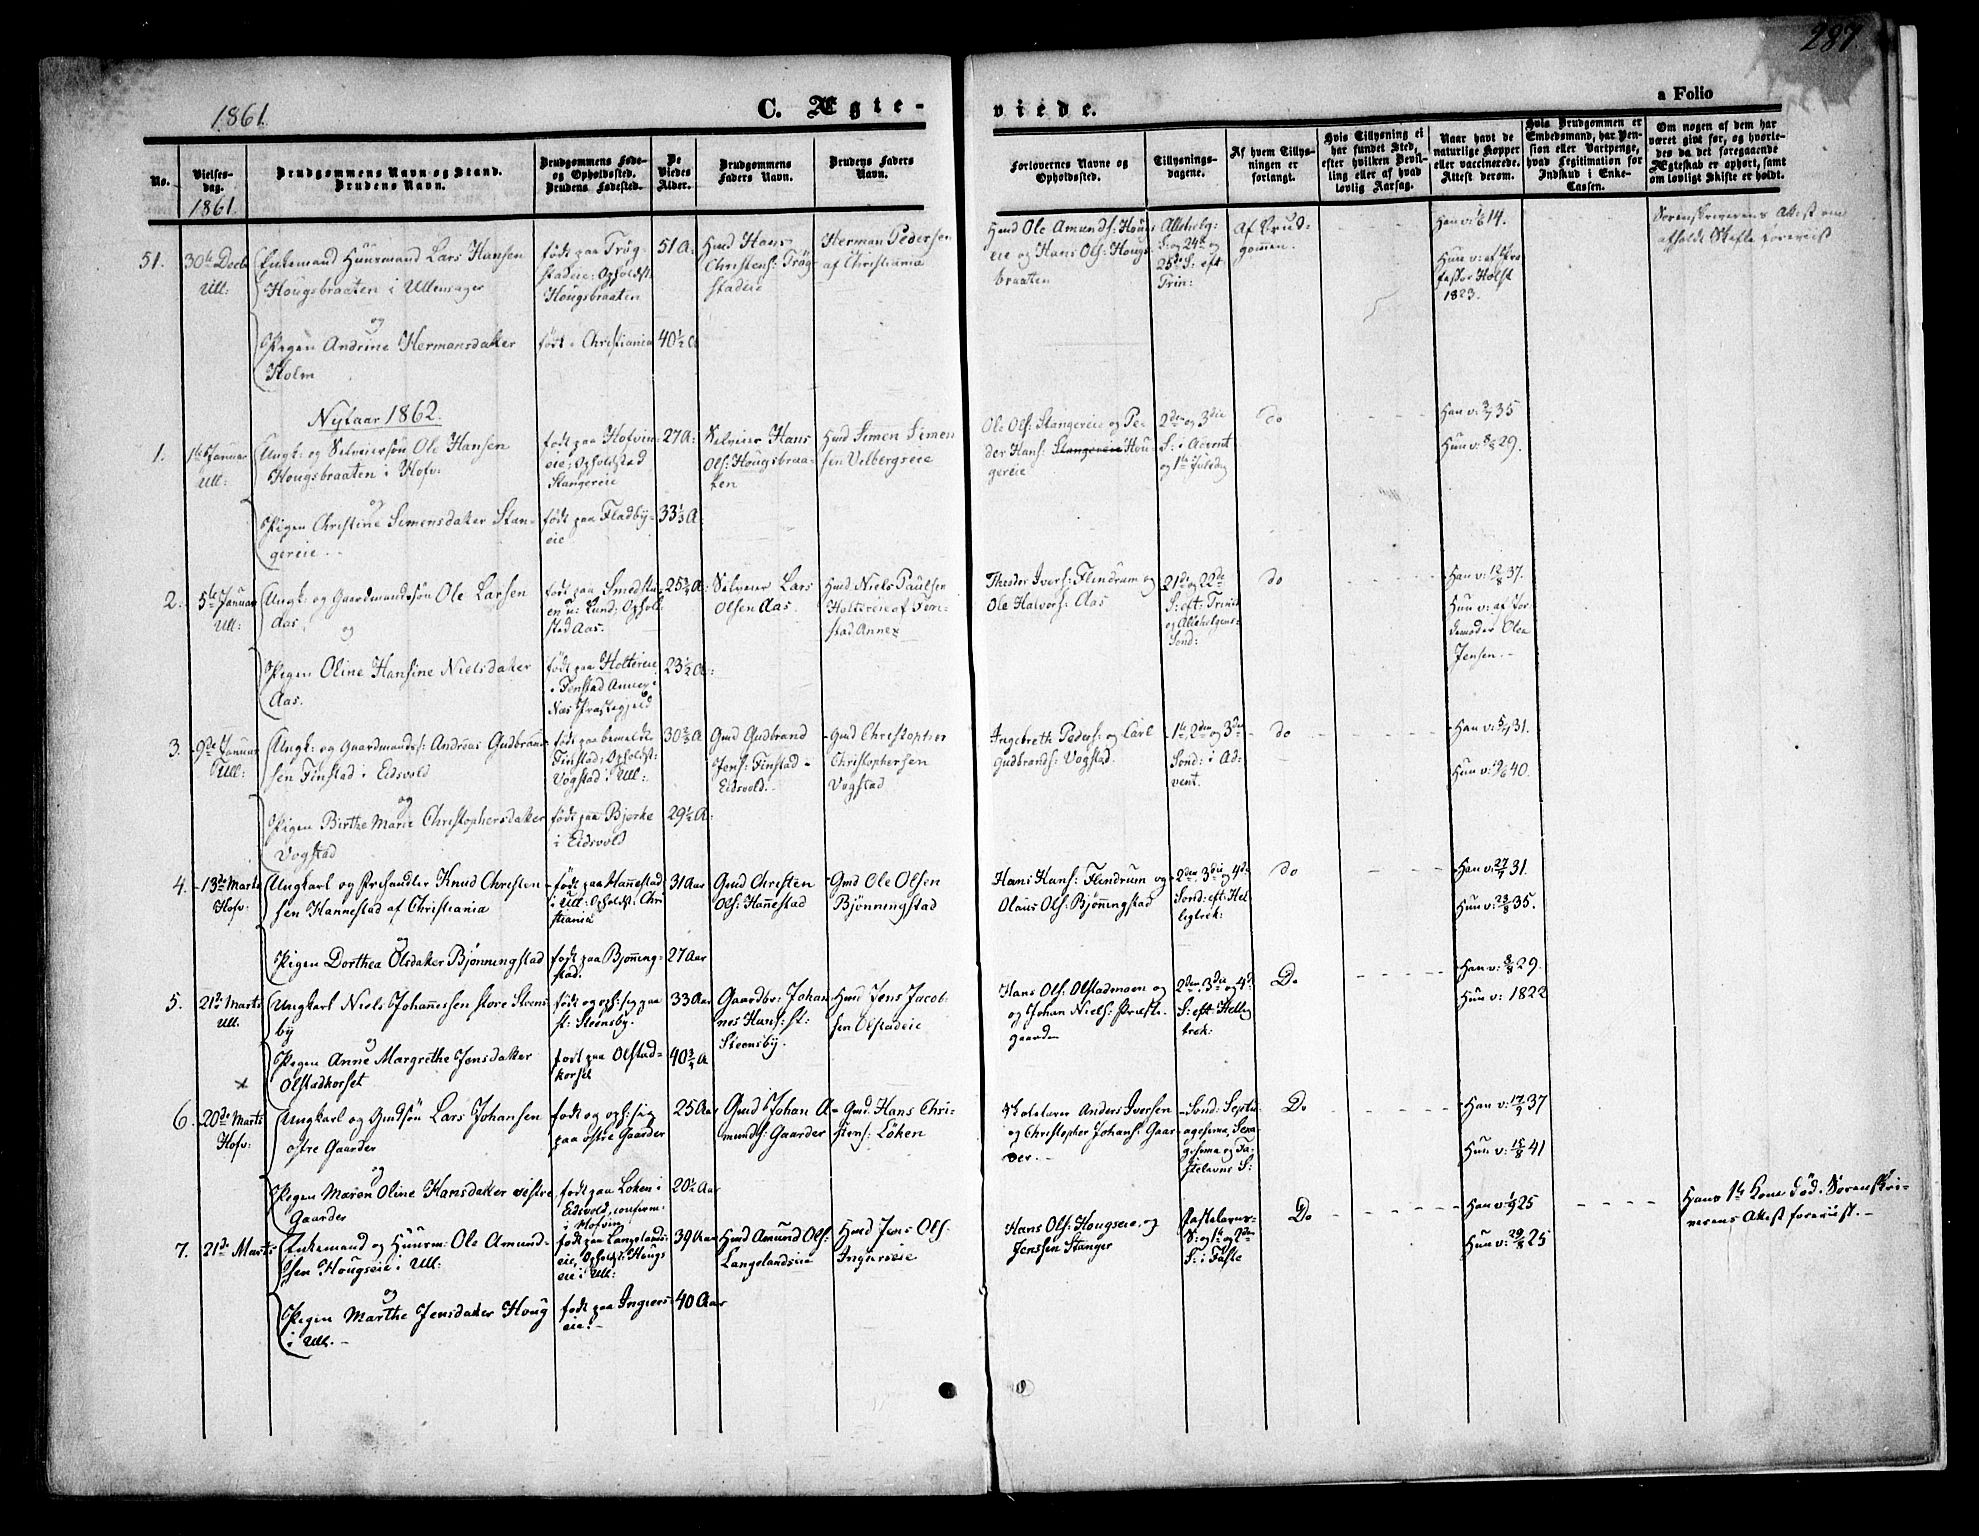 287
1861.
C. Ægte-
viede.
a Folio
No.
Vielses-
dag.
1861.
Brudgommens Navn og Stand.
Brudens Navn.
Brudgommens Føde-
og Opholdssted.
Brudens Fødested.
De
Viedes
Alder.
Brudgommens
Faders Navn.
Brudens Faders
Navn.
Forlovernes Navne og
Opholdssted.
Tillysnings-
dagene.
Af hvem Tillys-
ningen er
forlangt.
Hvis Tillysning ei
har fundet Sted,
efter hvilken Bevil-
ling eller af hvad
lovlig Aarsag.
Naar havt de
naturlige Kopper
eller vaccinerede.
Attest derom.
Hvis Brudgommen er
Embedsmand, har Pen-
sion eller Vartpenge,
hvad Legitimation for
Indskud i Enke-
Cassen.
Om nogen af dem har
været givt før, og hvorle-
des da det foregaaende
Ægteskab er ophørt, samt
om lovligt Skifte er holdt.
51.
30te Decbr
Ull:
Enkemand Huusmand Lars Hansen
Hougsbraaten i Ullensager
og
Pigen Andrine Hermansdatter
Holm
født paa Trøg-
stadeie; Opholdst:
Hougsbraaten
født i Christiania
51 A:
40½ A
Hmd Hans
Christens: Trøg-
stadeie
Herman Pedersen
af Christiania
Hmd Ole Amunds: Houg-
eie og Hans Ols: Hougs-
braaten
Allehelg:
S: og 24de og
25de S: eft
Trin:
Af Brud-
gommen.
Han v: 14.
Hun v: af Pro
fessor Holst
1823.
Sorenskriverens Attest om
afholdt Skifte foreviist
Nytaar 1862.
1.
1ste Januar
Ull:
Ungk: og Selveiersøn Ole Hansen
Hougsbraaten i Hofv:
og
Pigen Christine Simensdatter Stan-
gereie
født paa Hofvin-
eie; Opholdsted
Stangereie
født paa Fladby-
eie
27 A:
33⅓ A:
Selveier Hans
Ols: Hougsbraa-
ten
Hmd Simen Simen
sen Velbergseie
Ole Ols: Stangereie og Pe-
der Hans: Stangereie Hou-
gereie
2den og 3die
S: i Advent
og 1ste Juledag
do
Han v: 35
Hun v: 29.
2.
5te Januar
Ull:
Ungk: og Gaardmandssøn Ole Larsen
Aas.
og
Pigen Oline Hansine Nielsdatter
Aas.
født paa Smedstu-
en u: Lund; Ophold
sted Aas.
født paa Holtereie
i Fenstad Annex i
Næs Præstegjeld
25¾ A:
23½ A:
Selveier Lars
Olsen Aas.
Hmd Niels Paulsen
Holtereie af Fen-
stad Annex
Theodor Ivers: Flindrum og
Ole Halvors: Aas
21de og 22de
S: eft: Trinit
og Allehelgens-
Sond:
do
Han v: 12/8 37.
Hun v: af Jor
demoder Olea
Jensen.
3.
9de Januar
Ull:
Ungk: og Gaardmands: Andreas Gudbrand-
sen Finstad i Eidsvold
og
Pigen Birthe Marie Christophersdatter
Vogstad
født paa bemeldte
Finstad; Opholdst:
Vogstad i Ull:
født paa Bjerke
i Eidsvold
30⅔ A
29½ A:
Gmd Gudbrand
Jens: Finstad
Eidsvold.
Gmd Christopher
Christophersen
Vogstad
Ingebreth Peders: og Carl
Gudbrands: Vogstad.
1ste, 2den og 3die
Sond: i Ad-
vent.
do
Han v: 31.
Hun v: 40.
4.
13de Marts
Hofv:
Ungkarl og Prohandler Knud Christen-
sen Hannestad af Christiania
og
Pigen Dorthea Olsdatter Bjønningstad
født paa Hannestad
i Ull: Opholdst: Chri
stiania
født paa Bjønning-
stad.
31 Aar
27 Aar
Gmd Christen
Ols: Hannestad
Gmd Ole Olsen
Bjønningstad
Hans Hans: Flindrum og
Olaus Ols: Bjønningstad
2den, 3die og 4de
Sond: eft: Hel-
ligtrek:
do
Han v: 31.
Hun v: 35.
5.
21de Marts
Ull.
Ungkarl Niels Johannessen store Steens
by
og
Pigen Anne Margrethe Jensdatter
Olstadkorset
født og oph: sig paa
st: Steensby.
født paa Olstad-
korset
33 Aar
40¾ A
Gaardbr: Johan
nes Hans: st:
Steensby.
Hmd Jens Jacob-
sen Olstadeie
Hans Ols: Olstadmoen og
og Johan Niels: Præste-
gaarden
2den, 3die og 4de
S: eft: Hellig
trek:
Do
Han v: 29.
Hun v: 1822
6.
20de Marts
Hofv:
Ungkarl og Gmdsøn Lars Johansen
østre Gaarder
og
Pigen Maren Oline Hansdatter vestre
Gaarder
født og oph: sig
paa østre Gaarder
født paa Løken i
Eidsvold, confirm.
i Hofvin
25 Aar
20½ Aar
Gmd Johan A-
munds: Gaarder
Gmd. Hans Chri-
stens: Løken
Anders Iversen
og Christopher Johans: Gaar-
der.
Sond: Septu-
agesima, Sexa-
gesima og Fa-
stelavns S:
Do
Han v: 37
Hun v: 41
7.
21de Marts
Enkemand og Huusm: Ole Amund-
sen Hougseie i Ull:
og
Pigen Marthe Jensdatter Houg
i Ull.
født paa Langelands-
eie, Opholdst: Hougs
eie i Ull:
født paa Ingiers-
eie.
39 Aar
40 Aar
Hmd Amund Ols:
Langelandseie
Hmd Jens Ols:
Ingierseie
Hans Ols: Hougseie, og
Jenssen Stanger
Fastelavns-
S: og 1ste og 2den
S: i Faste
Do
Han v: 25
Hun v: 25
Hans 1ste Kone død. Sorenskri-
verens Attest foreviist.